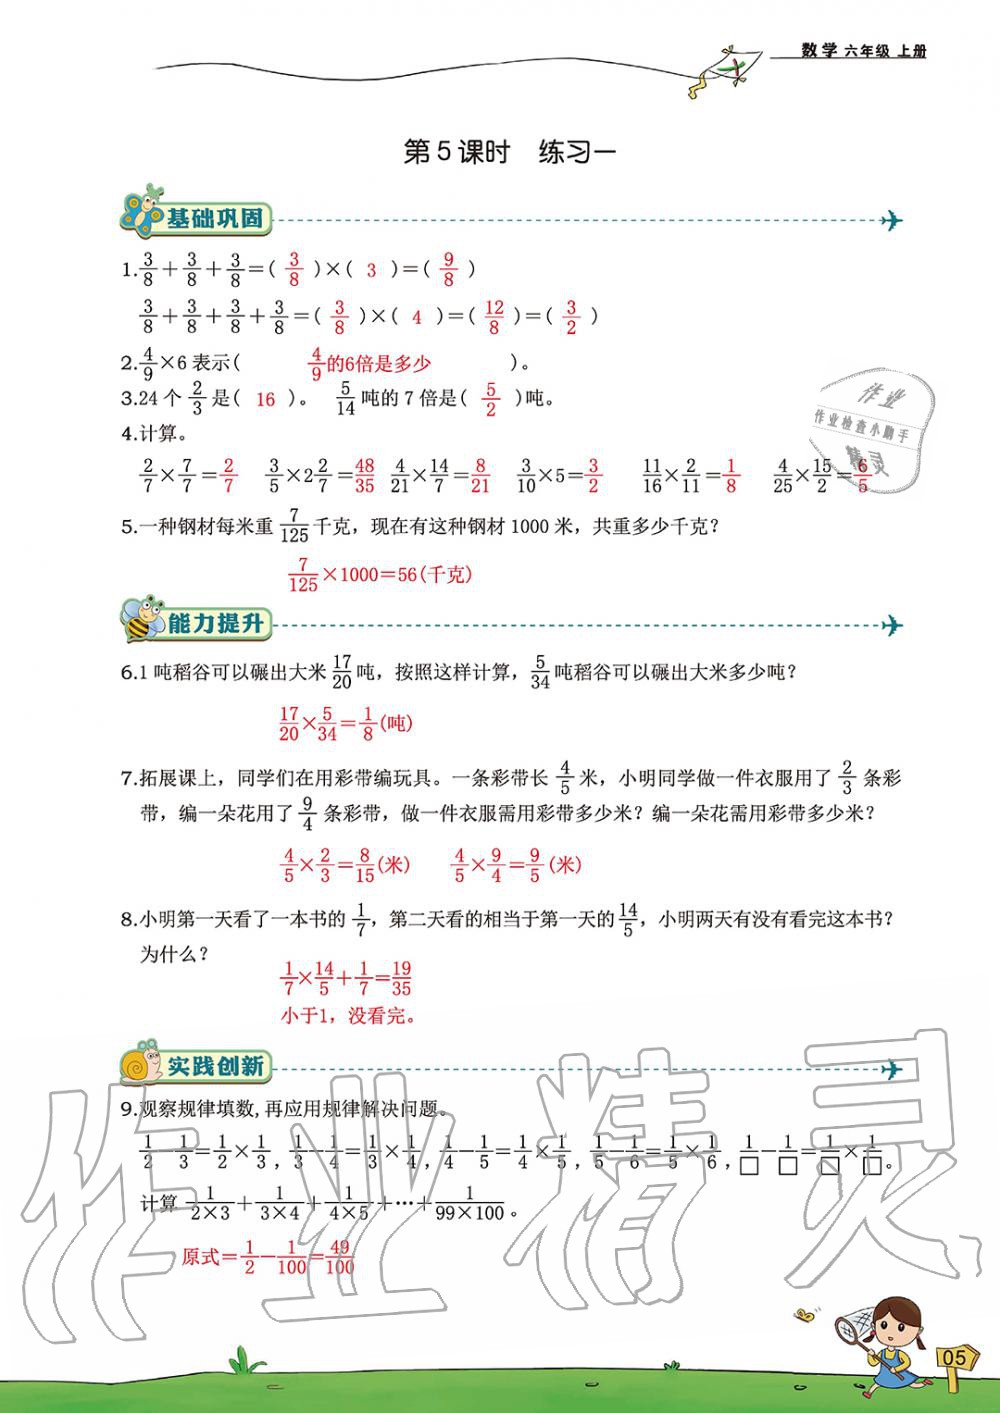 数学 六年级 上册
第5课时 练习一
基础巩固
1. 3/8+3/8+3/8=( 3/8 )×( 3 )=( 9/8 )
3/8+3/8+3/8+3/8=( 3/8 )×( 4 )=( 12/8 )=( 3/2 )
2. 4/9×6表示( 4/9的6倍是多少 )。
3.24个 2/3 是( 16 )。 5/14 吨的7倍是( 5/2 )吨。
4.计算。
2/7×7/7=2/7 3/5×2 2/7=48/35 4/21×14/7=8/21 3/10×5=3/2 11/16×2/11=1/8 4/25×15/2=6/5
5.一种钢材每米重 7/125 千克，现在有这种钢材1000米，共重多少千克？
7/125×1000=56(千克)
能力提升
6.1吨稻谷可以碾出大米 17/20 吨，按照这样计算，5/34 吨稻谷可以碾出大米多少吨？
17/20×5/34=1/8(吨)
7.拓展课上，同学们在用彩带编玩具。一条彩带长 4/5 米，小明同学做一件衣服用了 2/3 条彩
带，编一朵花用了 9/4 条彩带，做一件衣服需用彩带多少米？编一朵花需用彩带多少米？
4/5×2/3=8/15(米) 4/5×9/4=9/5(米)
8.小明第一天看了一本书的 1/7，第二天看的相当于第一天的14/5，小明两天有没有看完这本书？
为什么？
1/7×14/5+1/7=19/35
小于1，没看完。
实践创新
9.观察规律填数,再应用规律解决问题。
1/2-1/3=1/2×1/3,1/3-1/4=1/3×1/4,1/4-1/5=1/4×1/5,1/5-1/6=1/5×1/6,1/□-1/□=1/□×1/□。
计算 1/2×3+1/3×4+1/4×5+…+1/99×100。
原式=1/2-1/100=49/100
05
作业
作业检查小助手
精灵
作业精灵